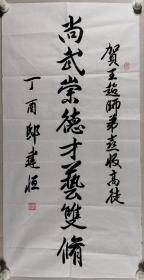 賀王超師弟喜收高徒
尚武崇德才藝雙脩
丁酉邸建恒